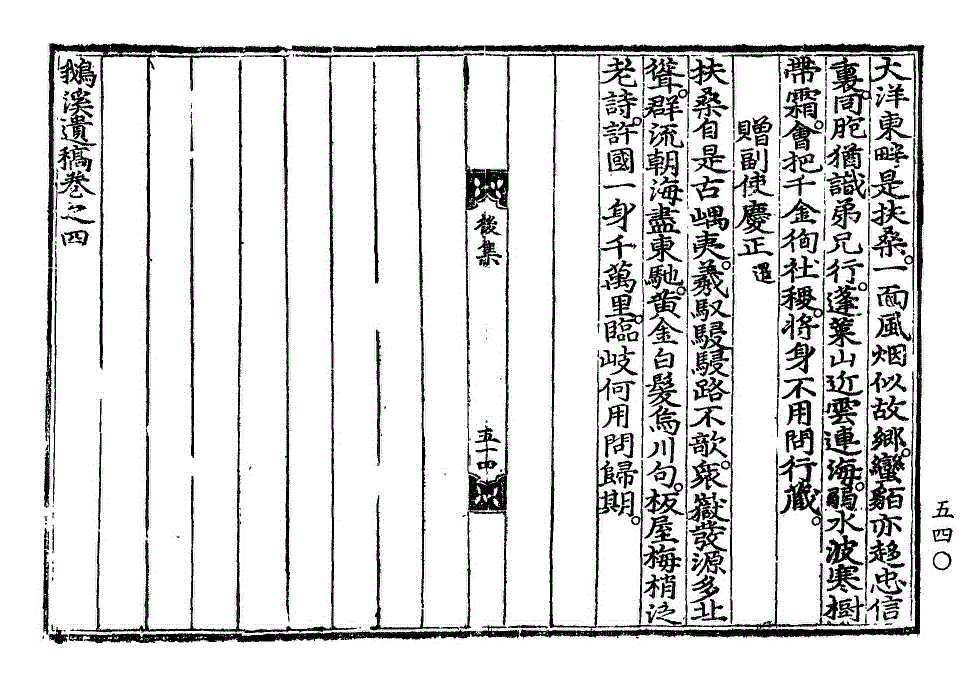 大洋東畔是扶桑。一面風烟似故鄕。蠻貊亦趍忠信
裏。同胞猶識弟兄行。蓬萊山近雲連海。弱水波寒樹
帶霜。會把千金徇社稷。將身不用問行藏。
贈副使慶正 暹
扶桑自是古嵎夷。羲馭駸駸路不欹。衆嶽發源多北
聳。群流朝海盡東馳。黃金白髮烏川句。板屋梅梢泛
老詩。許國一身千萬里。臨岐何用問歸期。
後集
五一四
鵝溪遺稿卷之四
五四〇